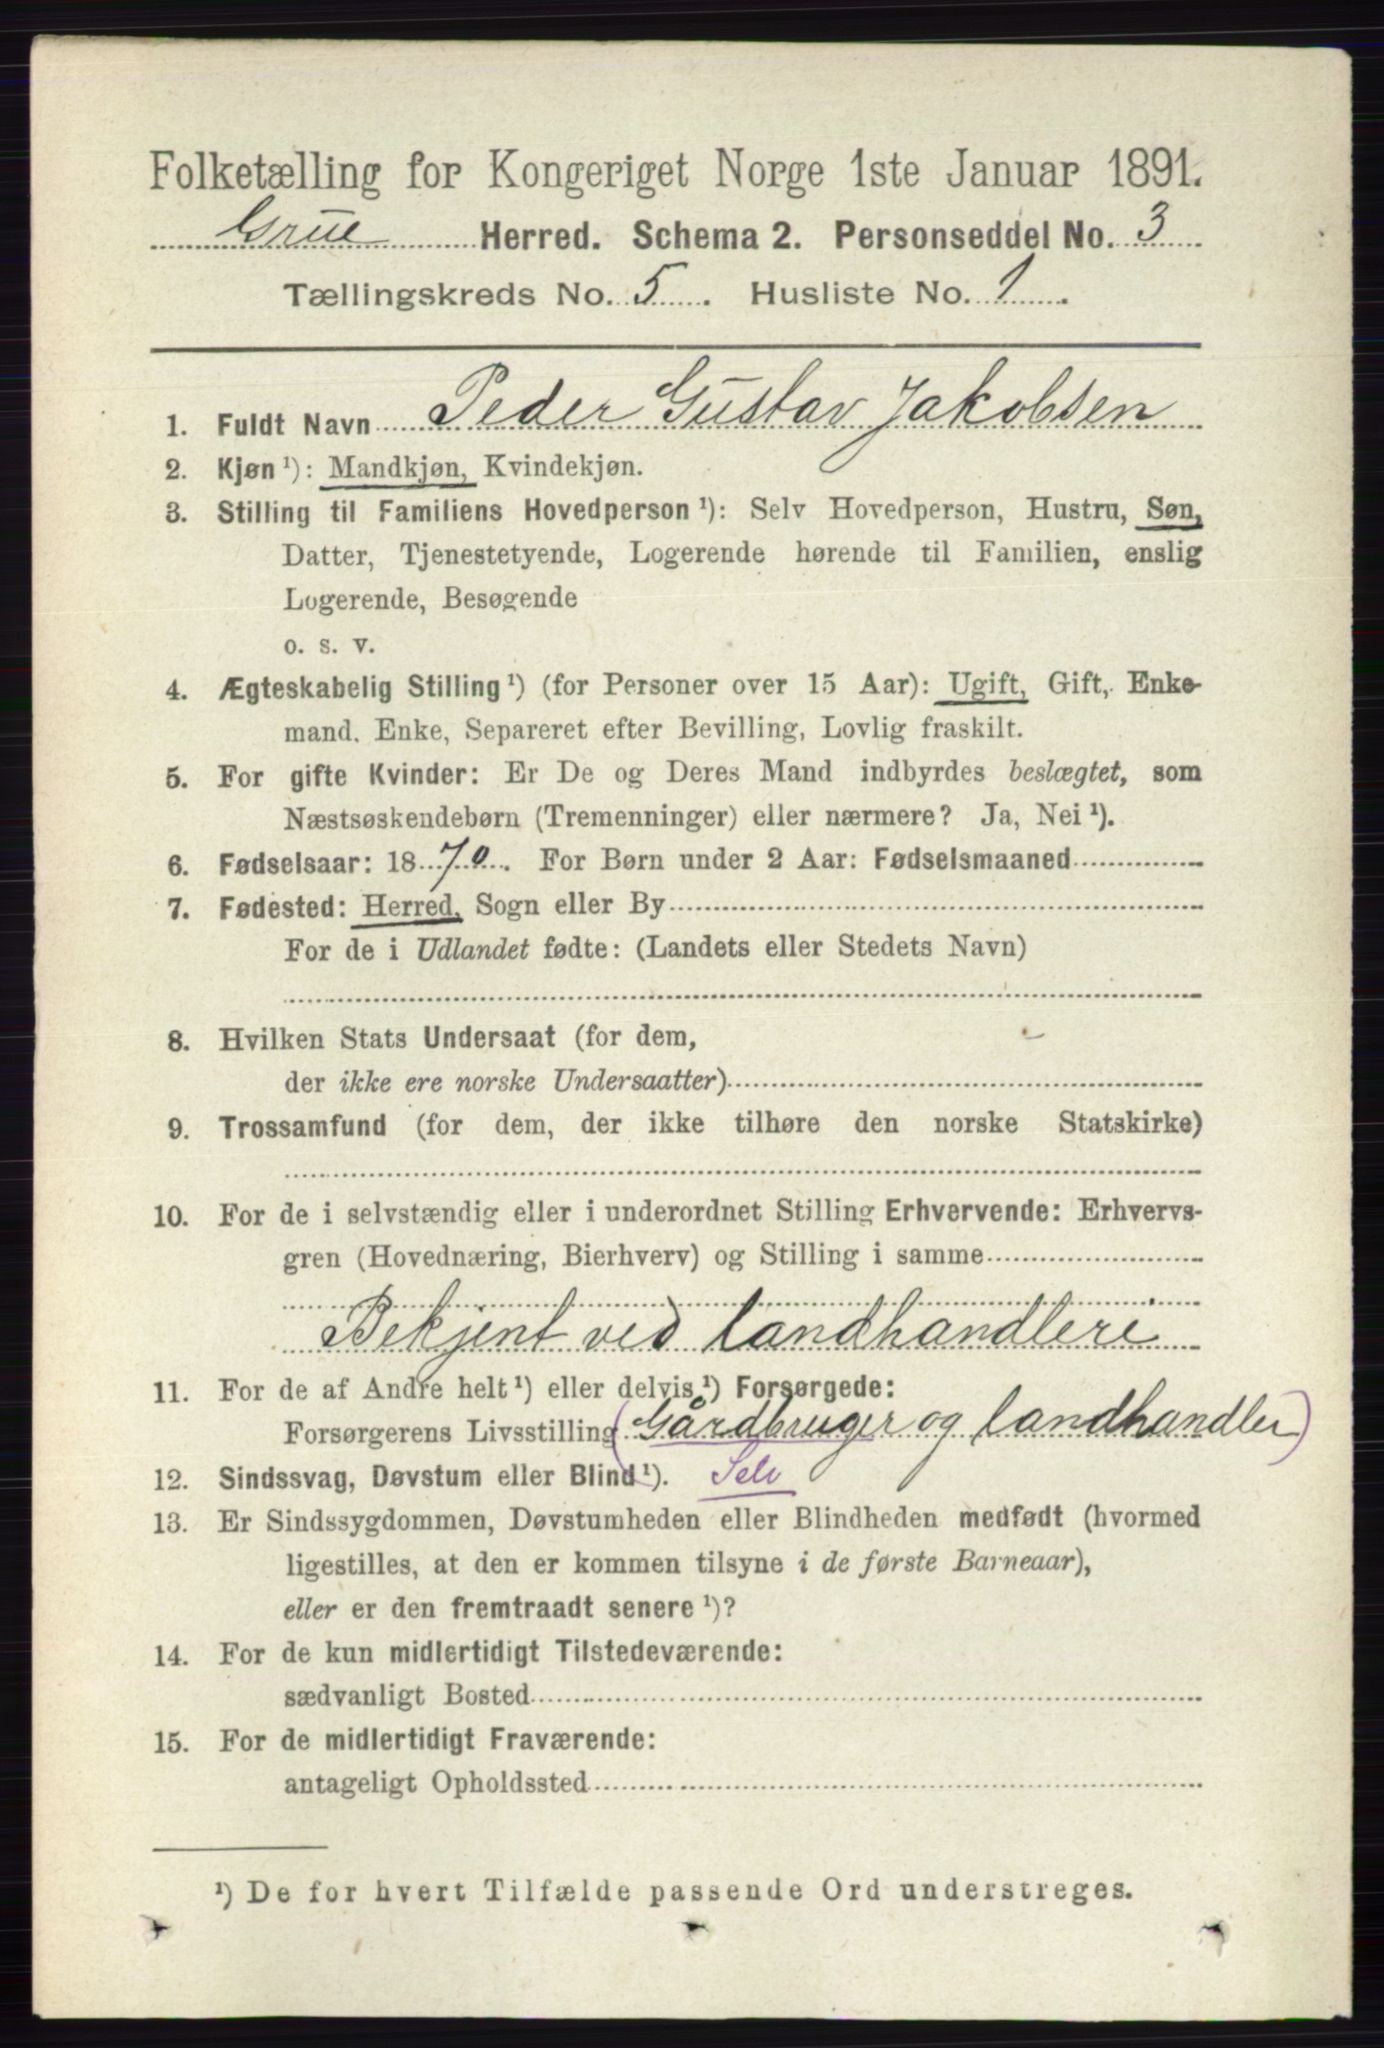 Folketælling for Kongeriget Norge 1ste Januar 1891.
Grue Herred. Schema 2. Personseddel No. 3
Tællingskreds No. 5. Husliste No. 1.
1. Fuldt Navn Peder Gustav Jakobsen
2. Kjøn ¹): Mandkjøn, Kvindekjøn.
3. Stilling til Familiens Hovedperson ¹): Selv Hovedperson, Hustru, Søn,
Datter, Tjenestetyende, Logerende hørende til Familien, enslig
Logerende, Besøgende
o. s. v.
4. Ægteskabelig Stilling ¹) (for Personer over 15 Aar): Ugift, Gift, Enke-
mand, Enke, Separeret efter Bevilling, Lovlig fraskilt.
5. For gifte Kvinder: Er De og Deres Mand indbyrdes beslægtet, som
Næstsøskendebørn (Tremenninger) eller nærmere? Ja, Nei ¹).
6. Fødselsaar: 1870. For Børn under 2 Aar: Fødselsmaaned
7. Fødested: Herred, Sogn eller By
For de i Udlandet fødte: (Landets eller Stedets Navn)
8. Hvilken Stats Undersaat (for dem,
der ikke ere norske Undersaatter)
9. Trossamfund (for dem, der ikke tilhøre den norske Statskirke)
10. For de i selvstændig eller i underordnet Stilling Erhvervende: Erhvervs-
gren (Hovednæring, Bierhverv) og Stilling i samme
Bekjent ved landhandleri
11. For de af Andre helt ¹) eller delvis ¹) Forsørgede:
Forsørgerens Livsstilling (Gårdbruger og landhandler)
12. Sindssvag, Døvstum eller Blind ¹). Selv
13. Er Sindssygdommen, Døvstumheden eller Blindheden medfødt (hvormed
ligestilles, at den er kommen tilsyne i de første Barneaar),
eller er den fremtraadt senere ¹)?
14. For de kun midlertidigt Tilstedeværende:
sædvanligt Bosted
15. For de midlertidigt Fraværende:
antageligt Opholdssted
¹) De for hvert Tilfælde passende Ord understreges.